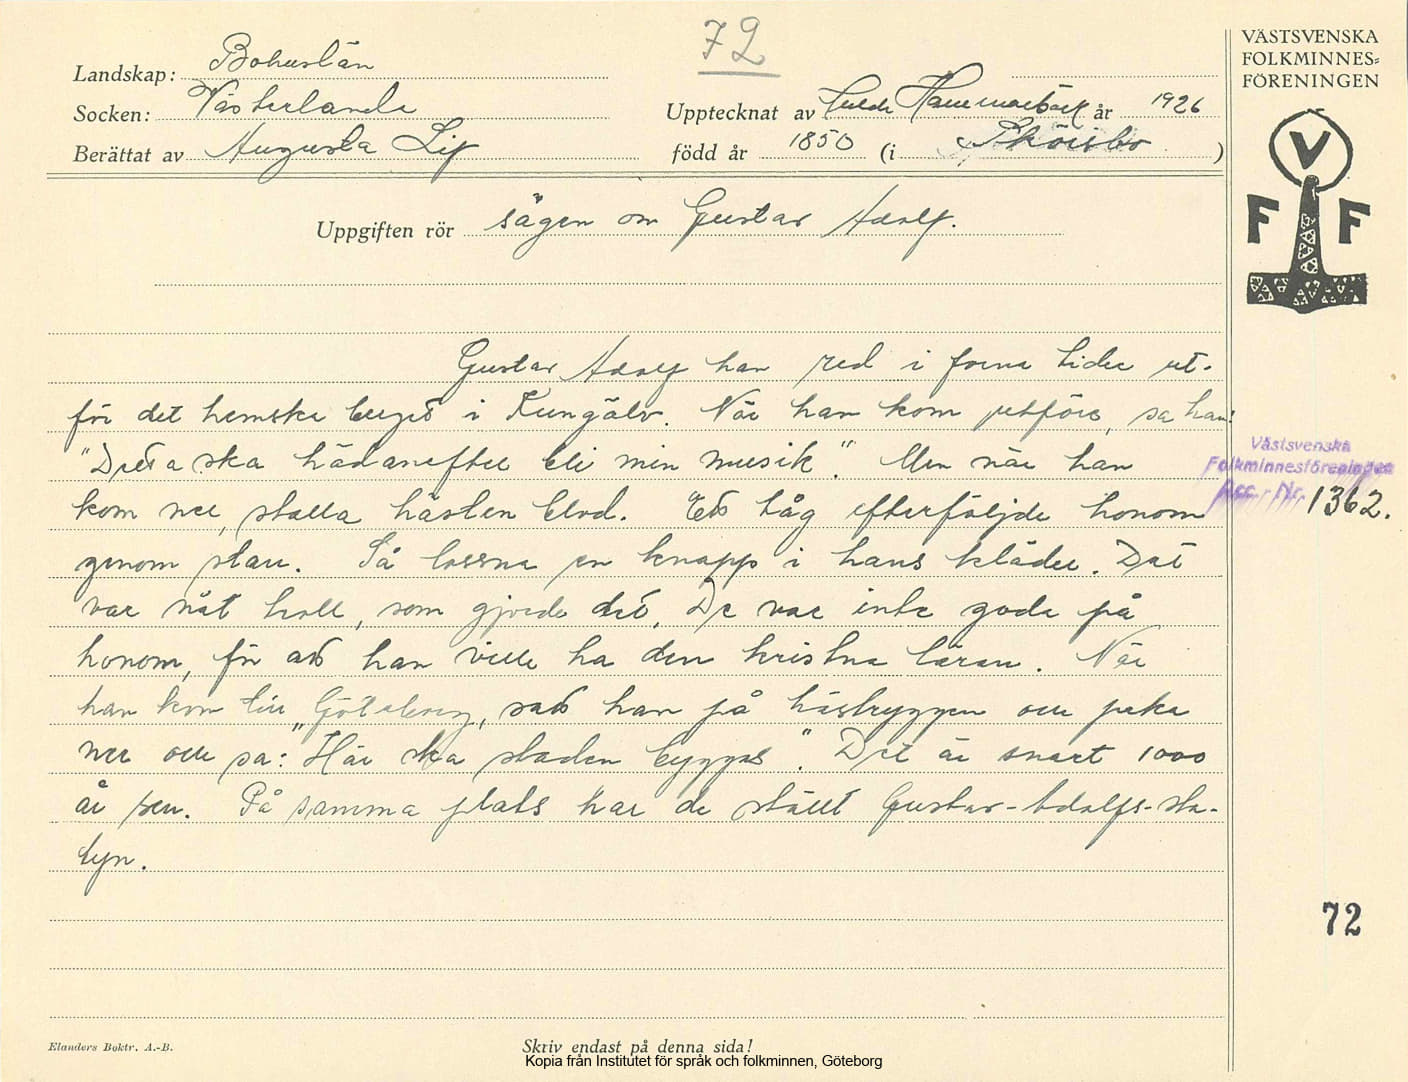 72
VÄSTSVENSKA
FOLKMINNES=
FÖRENINGEN
Landskap: Bohuslän
Socken: Västerlanda
Upptecknat av Hulda Hammarbäck år 1926
Berättat av Augusta Lij
född år 1850 (i Sköisbo )
V
F F
Uppgiften rör sägen om Gustav Adolf.
Gustav Adolf han red i forna tider ut-
för det hemska berget i Kungälv. När han kom utföre, sa han:
"Detta ska hädanefter bli min musik". Men när han
kom ner, stalla hästen blod. Ett tåg efterföljde honom
genom stan. Så lossna en knapp i hans kläder. Det
var nåt troll, som gjorde det. De var inte goda på
honom, för att han ville ha den kristna läran. När
han kom till "Göteborg, satt han på hästryggen och peka
ner och sa: "Här ska staden byggas". Det är snart 1000
år sen. På samma plats har de ställt Gustav-Adolfs-sta-
tyn.
Västsvenska
Folkminnesföreningen
Acc. Nr. 1362.
72
Elanders Boktr. A.-B.
Skriv endast på denna sida!
Kopia från Institutet för språk och folkminnen, Göteborg